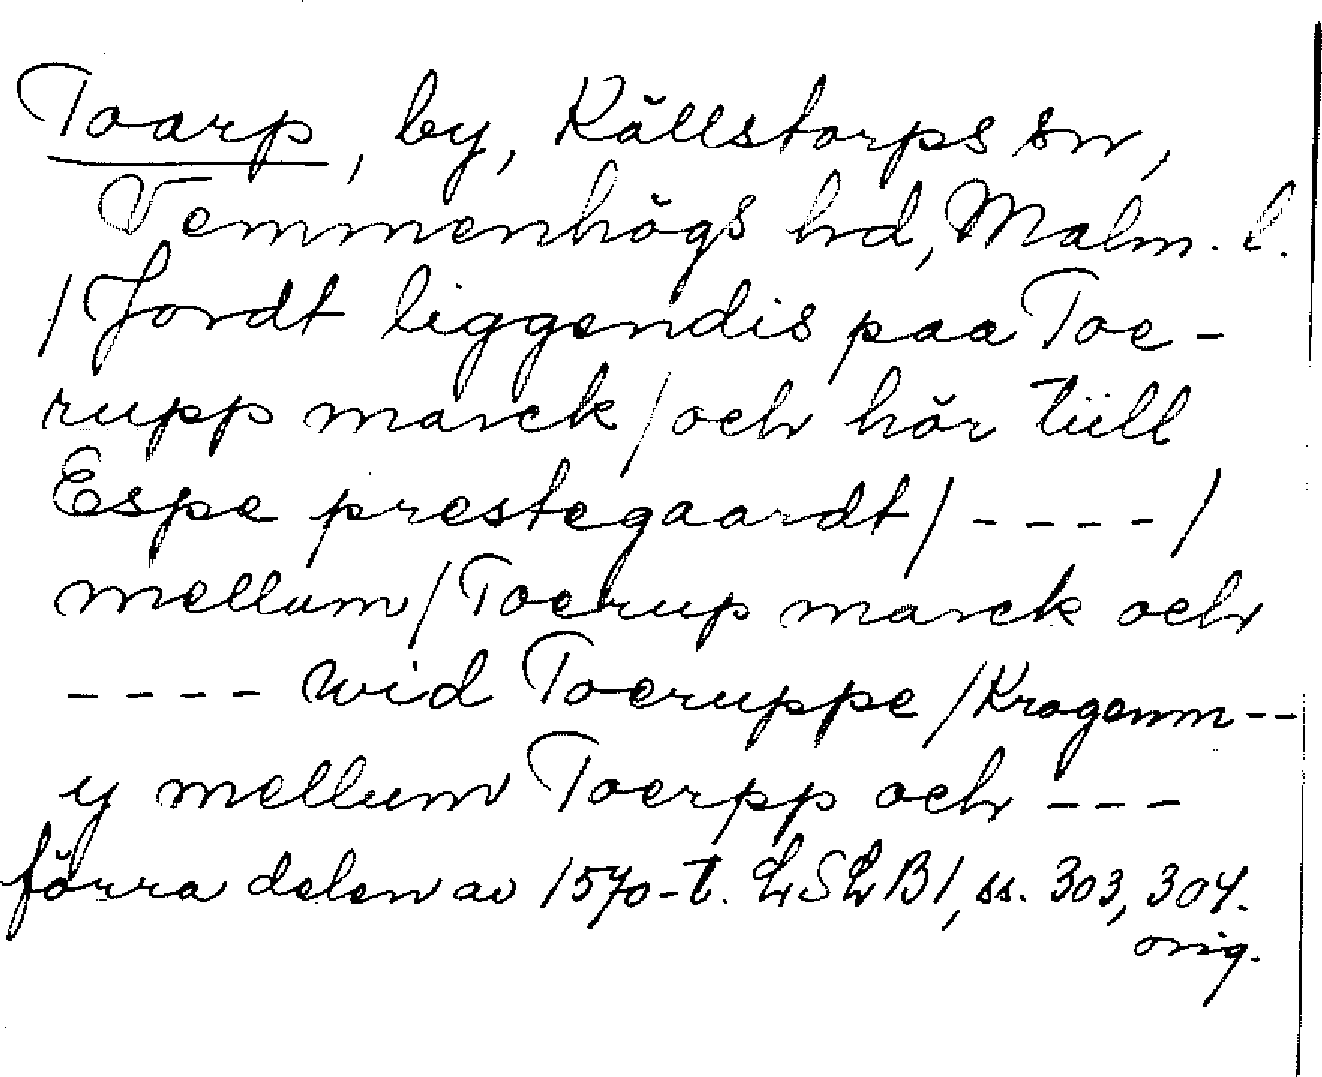 Toarp, by, Källstorps sn,
Vemmenhögs hd, Malm. l.
/Jordt liggendis paa Toe-
rupp marck/och hör tiill
Espe prestegaardt/----/
mellum/Toerup marck och
---- wid Toeruppe/Kragenm--
y mellum Toerpp och ---
förra delen av 1570-t. LSLB1, ss. 303, 304.
orig.